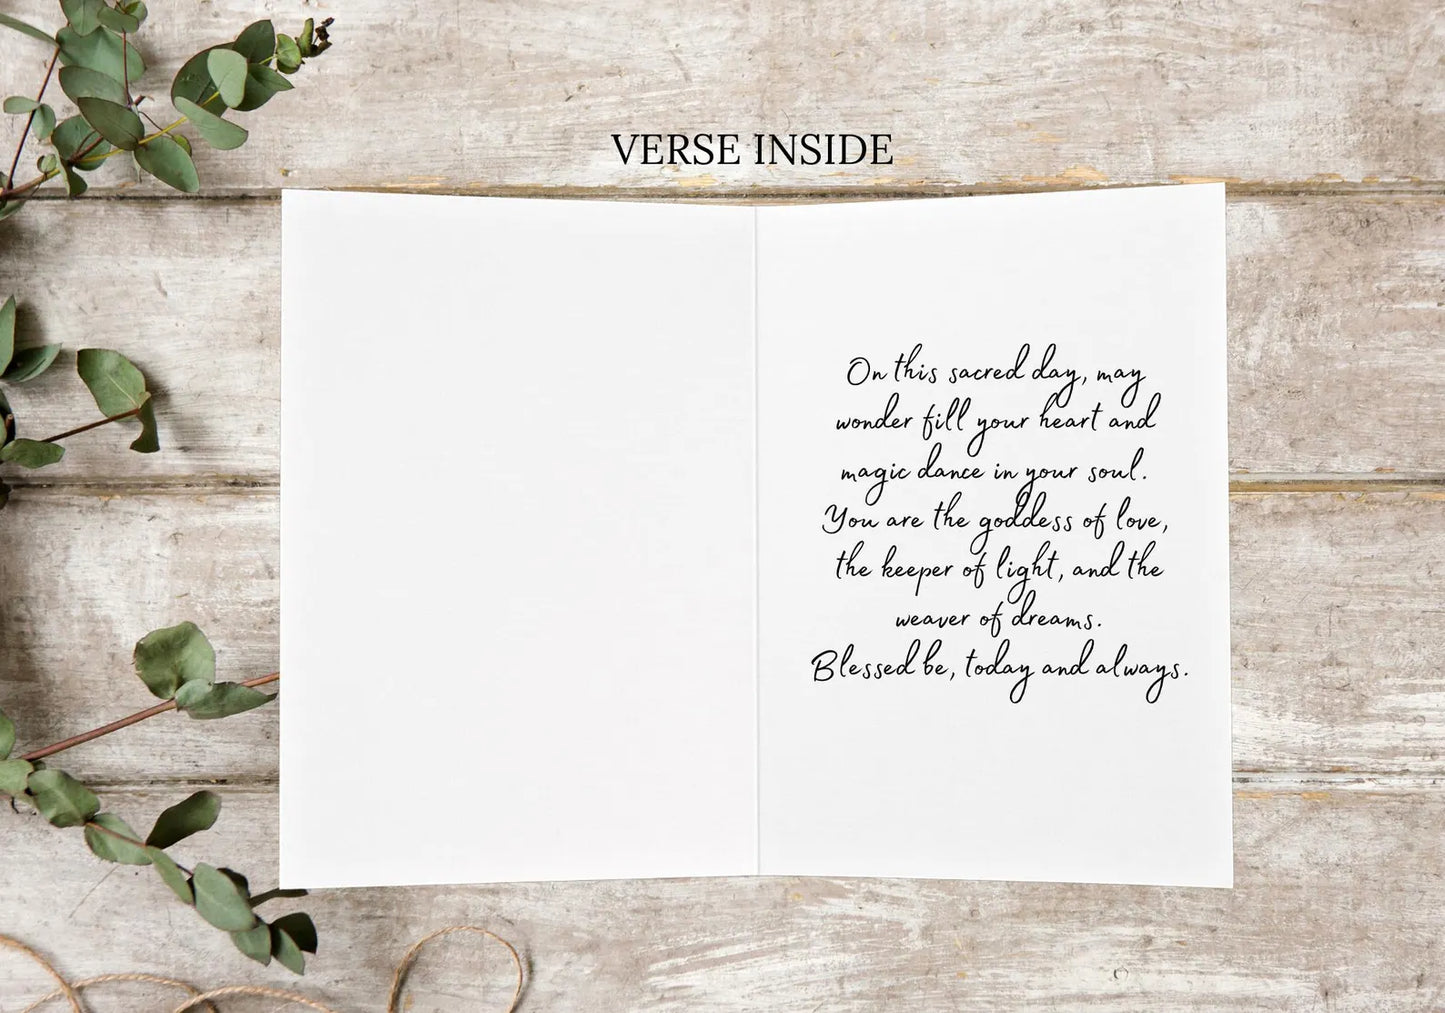 VERSE INSIDE
On this sacred day, may
wonder fill your heart and
magic dance in your soul.
You are the goddess of love,
the keeper of light, and the
weaver of dreams.
Blessed be, today and always.